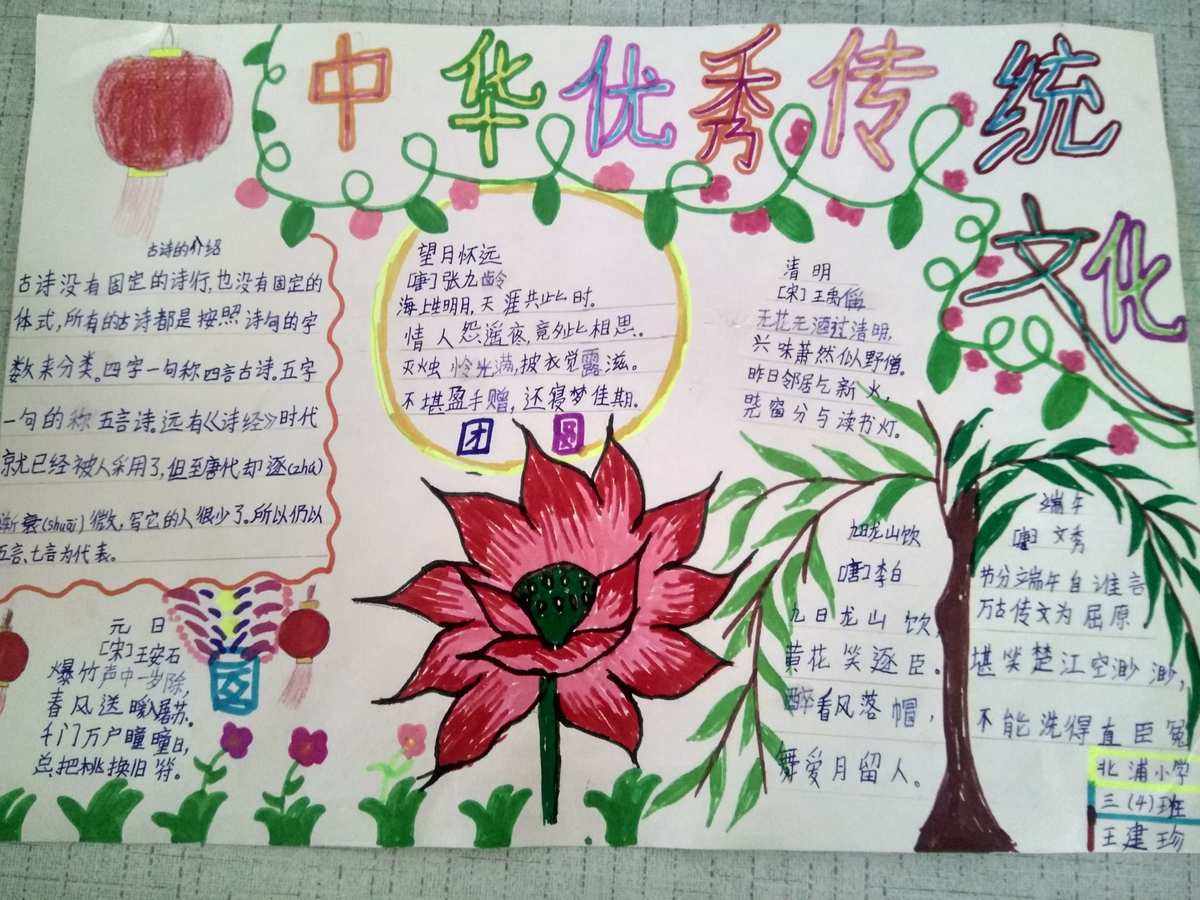 中华优秀传统
文化
古诗的介绍
古诗没有固定的诗行,也没有固定的
体式,所有的古诗都是按照诗句的字
数来分类。四字一句称四言古诗。五字
一句的称五言诗,远有《诗经》时代
就已经被人采用了,但至唐代却逐(zhú)
渐衰(shuāi)微,写它的人很少了。所以仍以
五言、七言为代表。
望月怀远
[唐]张九龄
海上生明月,天涯共此时.
情人怨遥夜,竟夕此相思.
灭烛怜光满,披衣觉露滋。
不堪盈手赠,还寝梦佳期.
团圆
清明
[宋]王禹偁
无花无酒过清明,
兴味萧然似野僧。
昨日邻居乞新火,
晓窗分与读书灯。
元日
[宋]王安石
爆竹声中一岁除,
春风送暖入屠苏。
千门万户曈曈日,
总把桃换旧符。
九日龙山饮
[唐]李白
九日龙山饮,
黄花笑逐臣。
醉看风落帽,
舞爱月留人.
端午
[唐]文秀
节分端午自谁言
万古传文为屈原
堪笑楚江空渺渺,
不能洗得直臣冤
北浦小学
三(4)班
王建珍